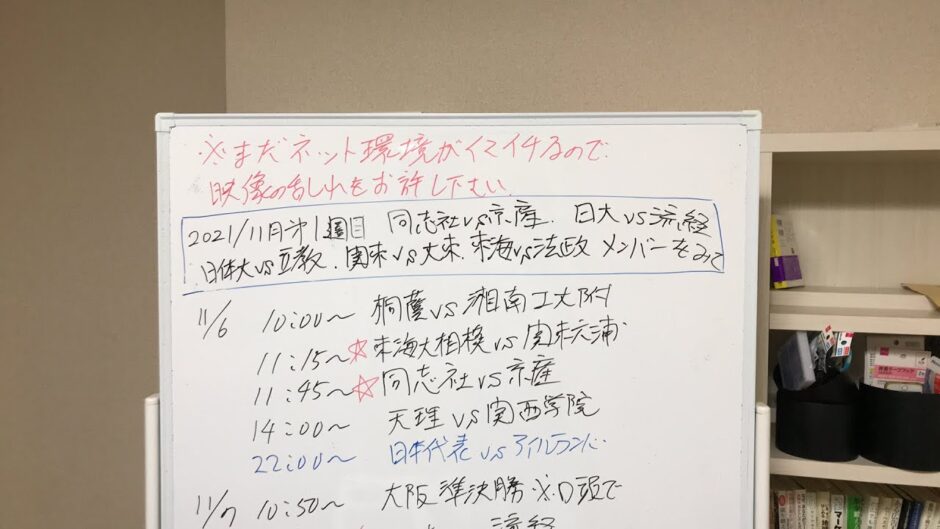 ※まだネット環境がイマイチなので
映像の乱れをお許し下さい
2021/11月第1週目 同志社vs京産. 日大vs流経
日体大vs立教.関東vs大東.東海vs法政 メンバーをみて
11/6 10:00〜 桐蔭vs湘南工大附
11:15〜☆東海大相模vs関東六浦
11:45〜☆同志社vs京産
14:00〜 天理vs関西学院
22:00〜 日本代表vsアイルランド
11/7 10:50〜 大阪準決勝※口頭で
流経